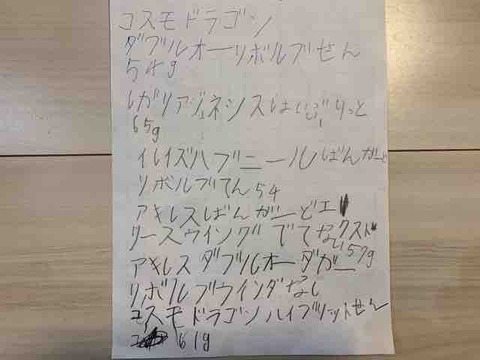 コスモドラゴン
ダブルオーリボルブせん
54g
しがリアジェネシスはいぶりっと
65g
イレイズハブニールばんがーど
リボルブてん54
アキレスばんがーどエ
リースウイングでてないクスト
57g
アキレスダブルオーダガー
リボルブウイングなし
コスモドラゴンハイブリットせん
61g